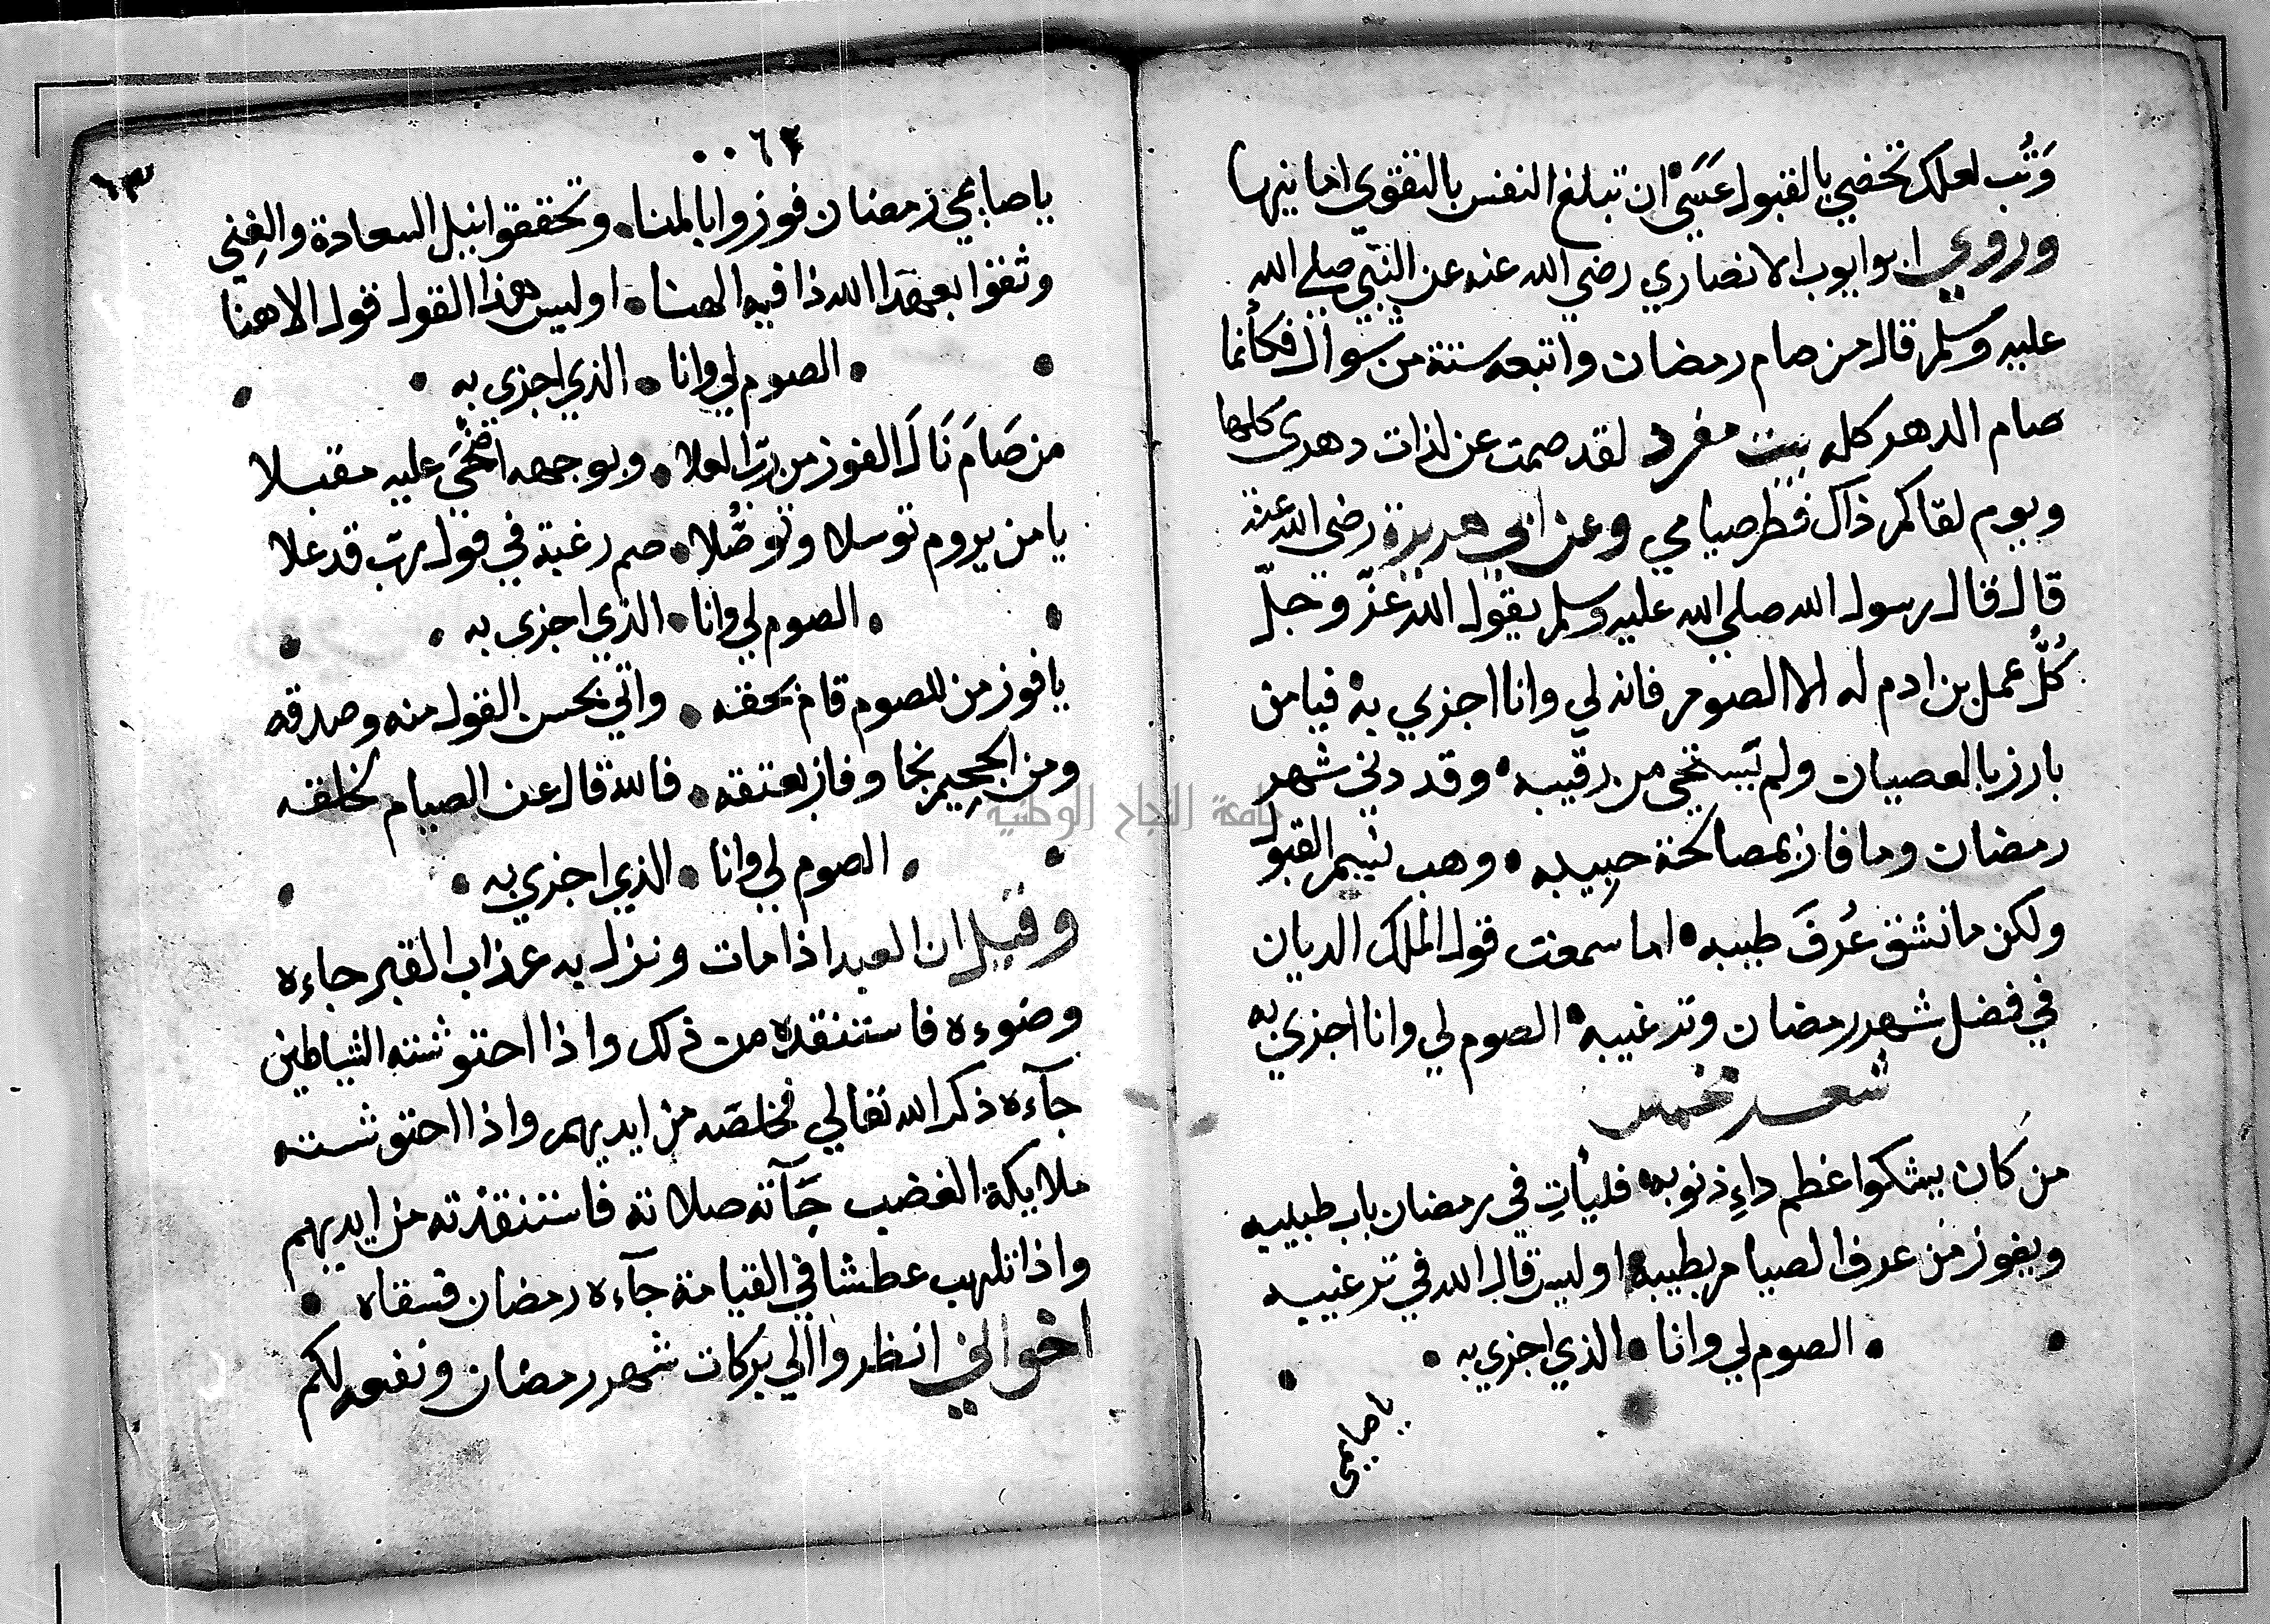 وَتُب لعلك تحضي بالقبول عَسَى ان تبلغ النفس بالتقوي امانيها
وروي ابو ايوب الانصاري رضي الله عنه عن النبي صلي الله
عليه وسلم قال من صام رمضان واتبعه ستة من شوال فكأنما
صام الدهر كله بيت مفرد لقد صمت عن لذات دهري كلها
ويوم لقاكم ذاك فطر صيامي وعن ابي هريرة رضي الله عنه
قال قال رسول الله صلي الله عليه وسلم يقول الله عزّ وجلّ
كُلُّ عمل بن ادم له الا الصوم فانه لي وانا اجزي به فيا من
بارز بالعصيان ولم يَستحي من رقيبه وقد دني شهر
رمضان وما فاز بمصالحة حبيبه وهب نسيم القبول
ولكن ما نشق عُرفَ طيبه اما سمعت قول الملك الديان
في فضل شهر رمضان وترغيبه الصوم لي وانا اجزي به
شعر مخمس
من كَان يشكوا عظم داءِ ذنوبه فليأتِ في رمضان باب طبيبه
ويفوز من عرف الصيام بطيبه اوليس قال الله في ترغيبه
الصوم لي وانا الذي اجزي به
يا صايمي
٦٢
٦٣
يا صايمي رمضان فوزوا بالمنا وتحققوا نيل السعادة والغِني
وثقوا بعهد الله ذا فيه الهنا اوليس هذا القول قول الاهنا
الصوم لي وانا الذي اجزي به
من صَامَ نَالَ الفوز من ربّ العلا وبوجهه اضحَي عليه مقبلا
يا من يروم توسلا وتوصُّلا صم رغبة في قول ربّ قد علا
الصوم لي وانا الذي اجزي به
يا فوز من للصوم قام بحقه واتي بحسن القول منه وصدقه
ومن الجحِيم نجا وفاز بعتقه فالله قال عن الصيام لخلقه
الصوم لي وانا الذي اجزي به
وقيل ان العبد اذا مات ونزل به عذاب القبر جاءه
وضوءه فاستنقذه من ذلك واذا احتوشته الشياطين
جآءه ذكر الله تعالي فخلصه من ايديهم واذا احتوشته
ملايكة الغضب جَآته صلاته فاستنقذته من ايديهم
واذا تلهب عطشا في القيامة جآءه رمضان فسقاه
اخواني انظروا الي بركات شهر رمضان ونفعه لكم
جامعة النجاح الوطنية